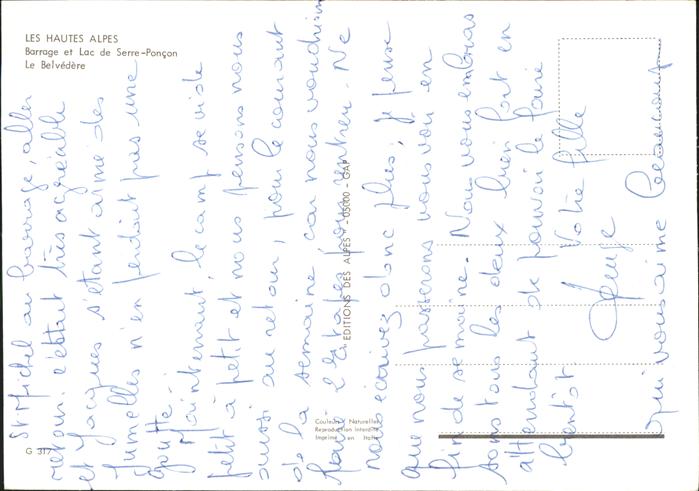 LES HAUTES ALPES
Barrage et Lac de Serre-Ponçon
Le Belvédère
St Michel au barrage, aller
retour. c'était très agréable
et Jacques s'étant armé des
jumelles n'en perdait pas une
goutte.
Maintenant, le camp se vide
petit à petit et nous pensons nous
aussi au retour, pour le courant
de la semaine car nous voudrions
faire 2 étapes pour rentrer. Ne
nous écrivez donc plus, je pense
que nous passerons vous voir en
fin de semaine. Nous vous embrassons
tous les deux bien fort en
attendant de pouvoir le faire
bientôt
Votre fille
qui vous aime beaucoup
EDITIONS DES ALPES - 05000 - GAP
Couleurs Naturelles
Reproduction Interdite
Imprimé en Italie
G 317